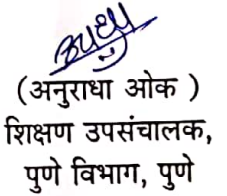 (अनुराधा ओक )
शिक्षण उपसंचालक,
पुणे विभाग, पुणे